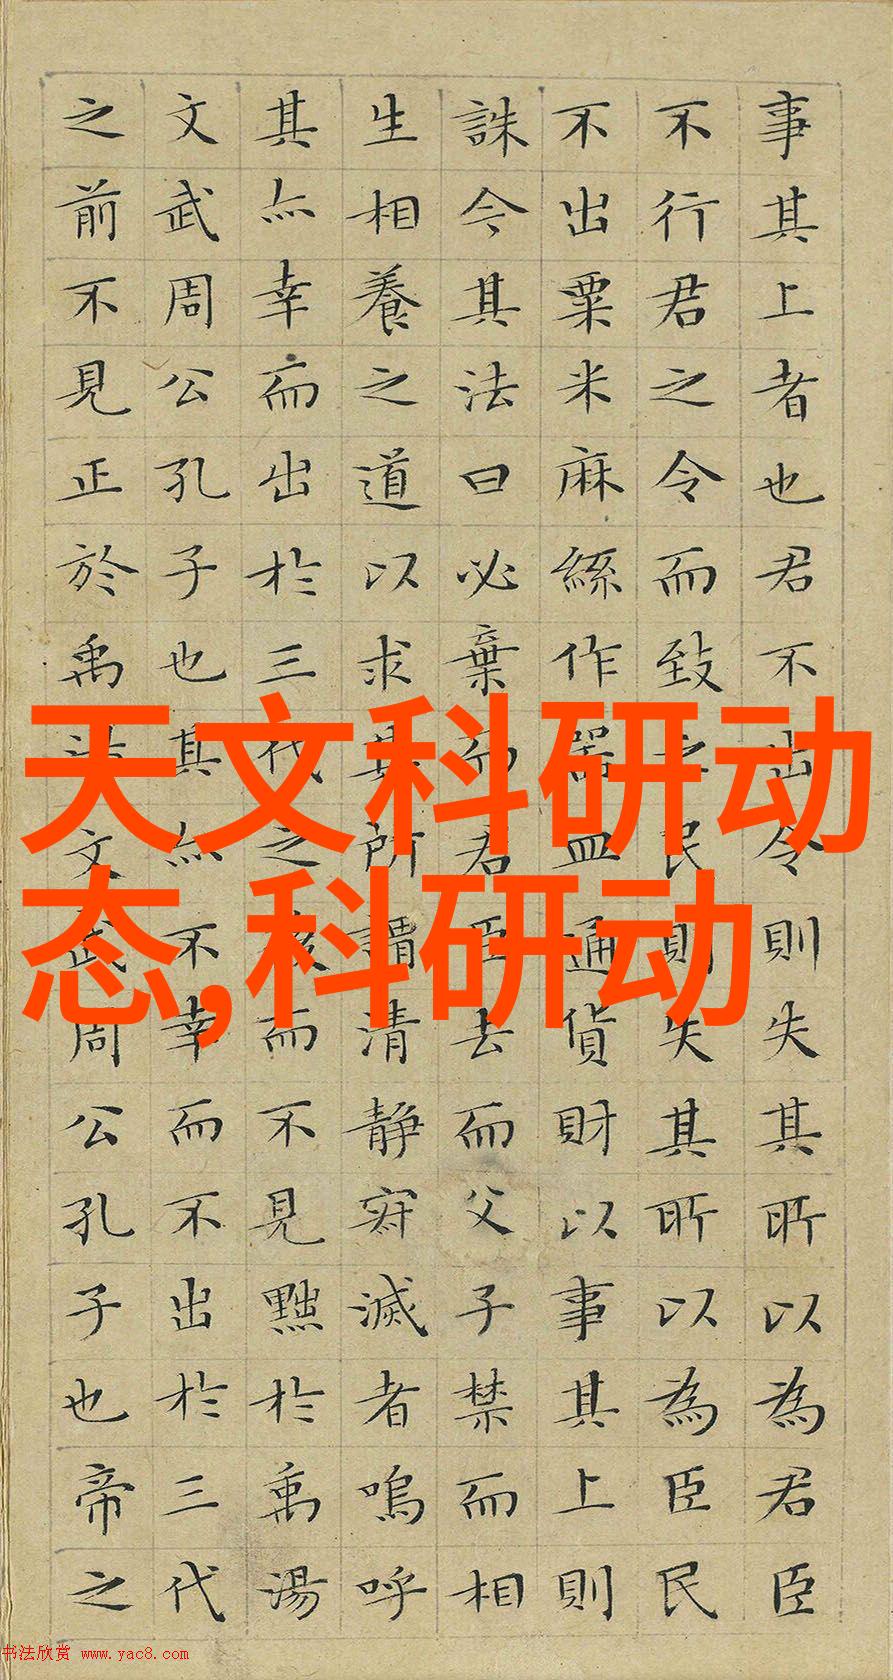 事其上者也君不出令則失其所以為君臣
不行君之令而致之民則失其所以為臣民
不出粟米麻絲作器皿通貨財以事其上則
誅今其法曰必棄而君臣去而父子禁而相
生相養之道以求其所謂清静寂滅者嗚呼
其亦幸而出於三代之後而不見黜於禹湯
文武周公孔子也其亦不幸而不出於三代
之前不見正於禹湯文武周公孔子也帝之
天文科研动
态,科研动
书法欣赏 www.yac8.com